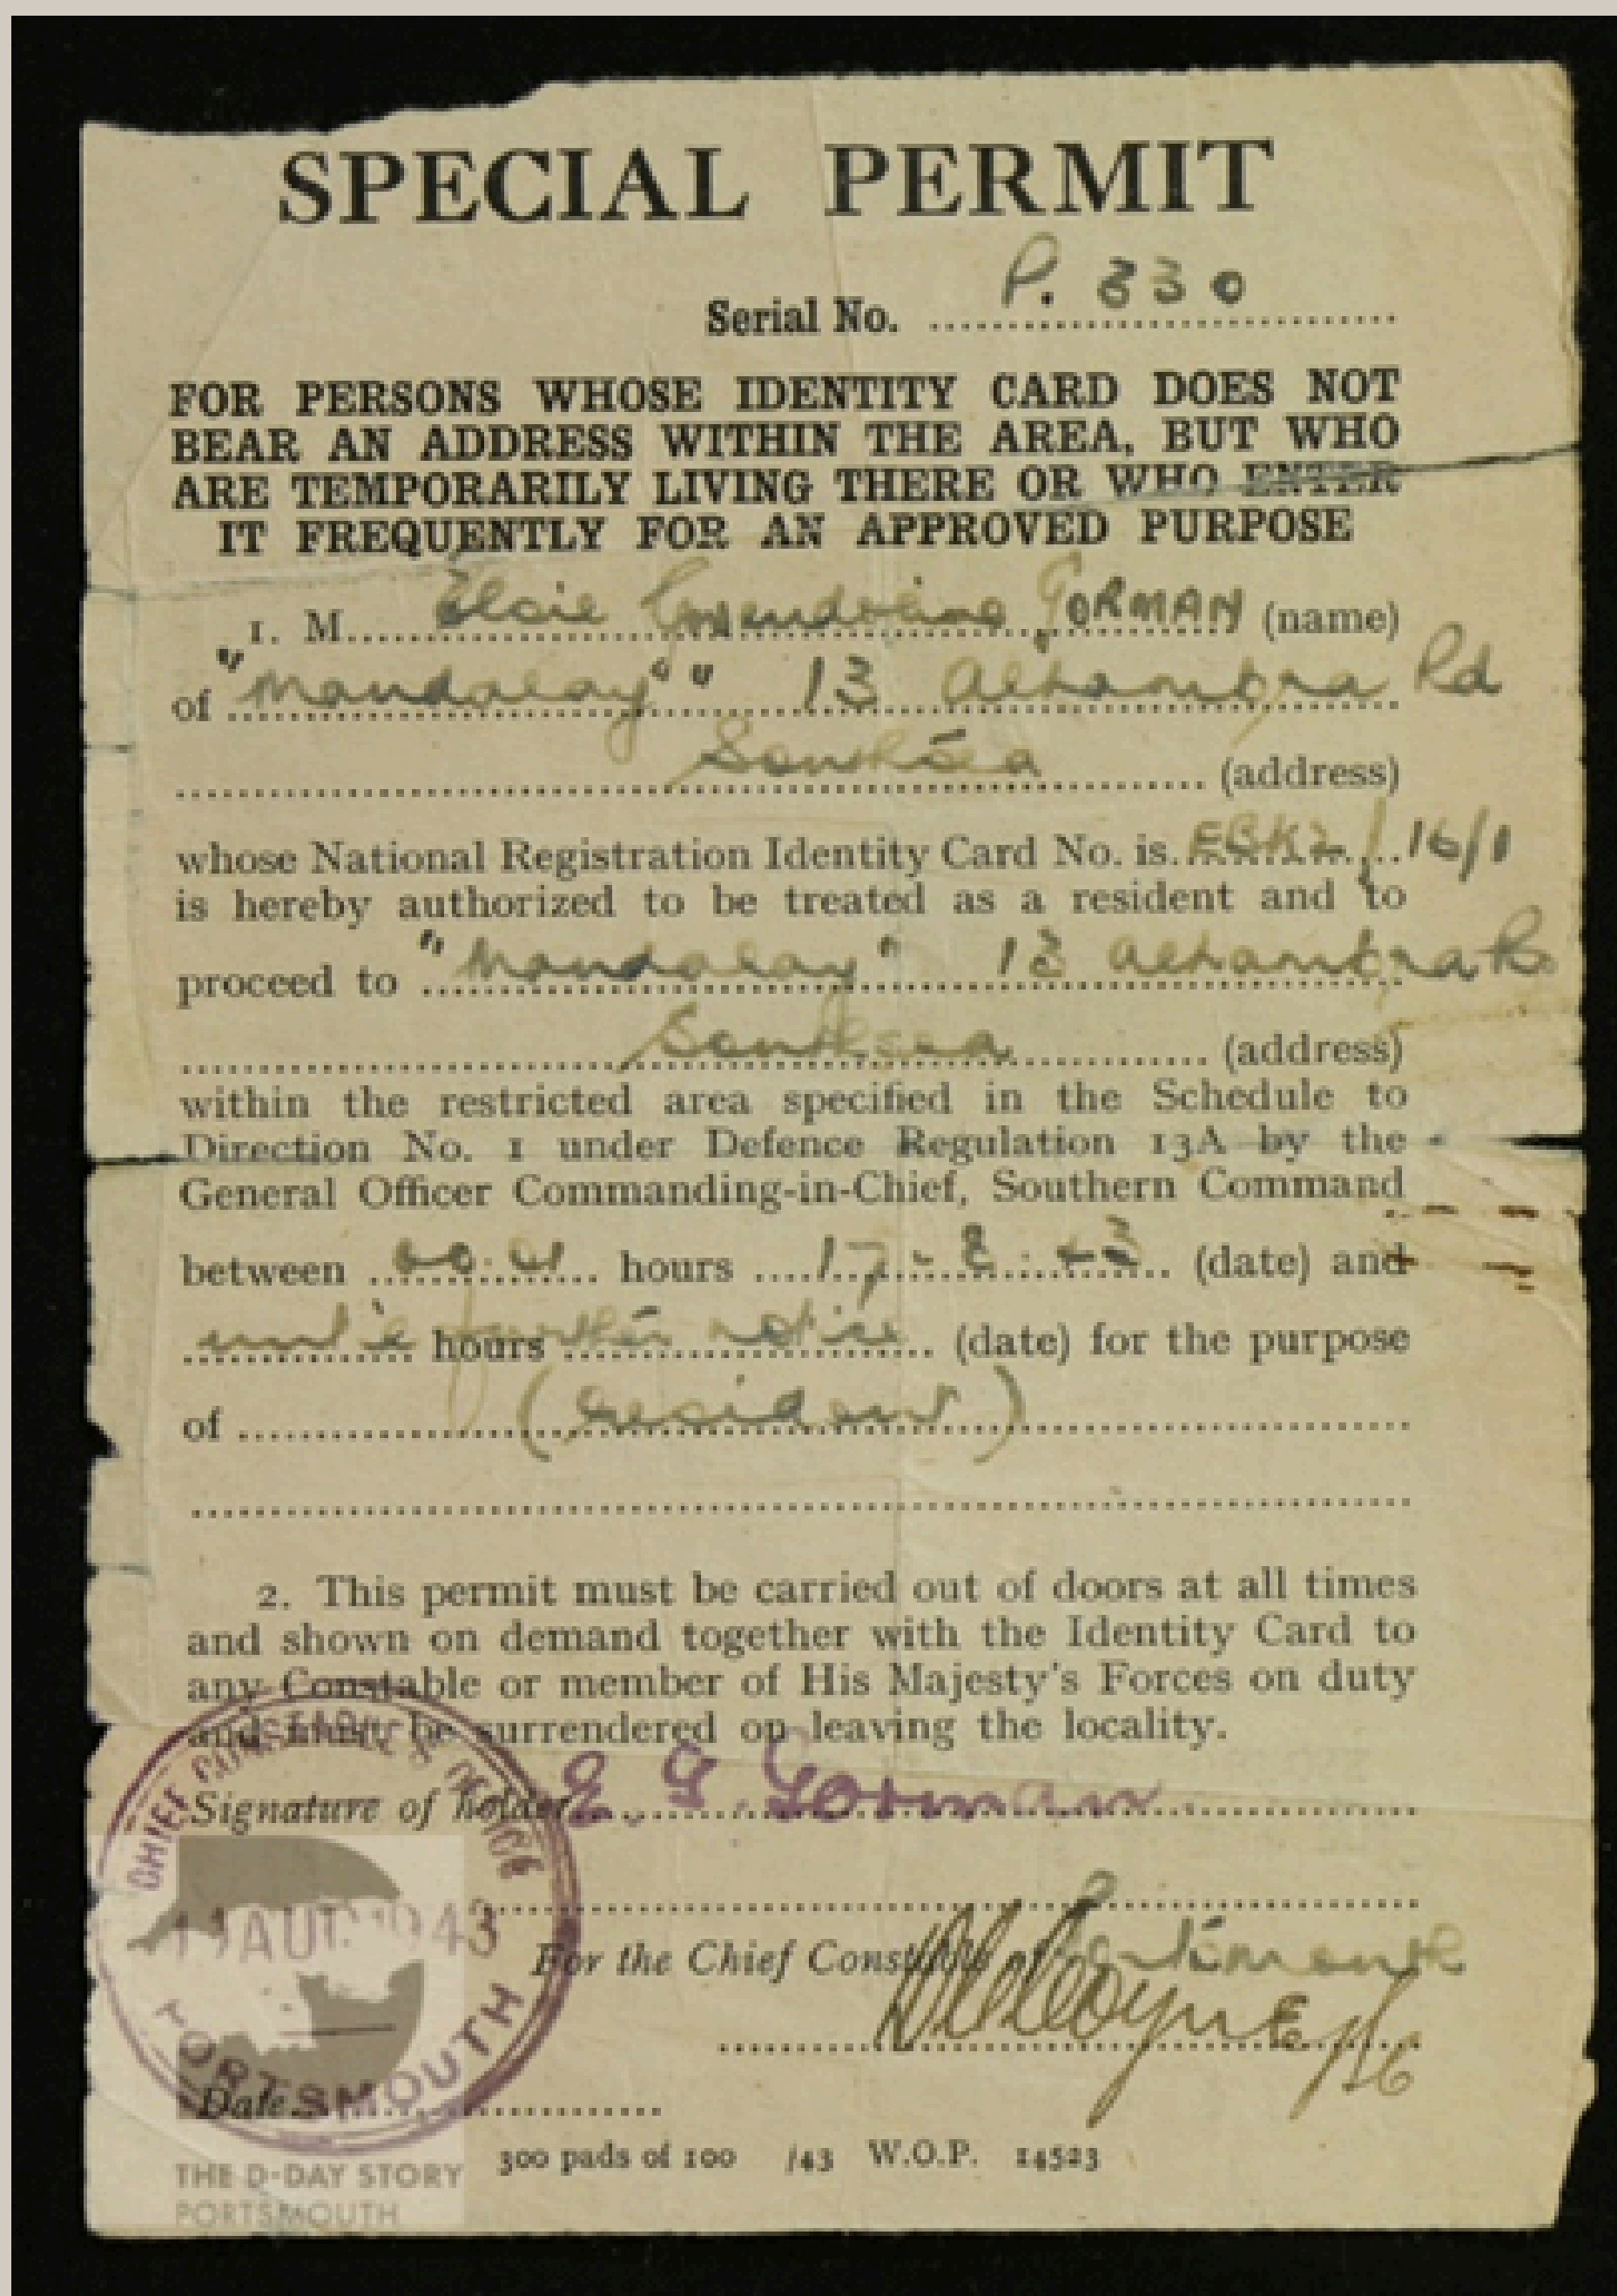 SPECIAL PERMIT
Serial No. P. 330
FOR PERSONS WHOSE IDENTITY CARD DOES NOT
BEAR AN ADDRESS WITHIN THE AREA, BUT WHO
ARE TEMPORARILY LIVING THERE OR WHO ENTER
IT FREQUENTLY FOR AN APPROVED PURPOSE
1. M Elsie Gwendoline GORMAN (name)
of "Mandalay" " 13 Alhambra Rd
Southsea (address)
whose National Registration Identity Card No. is 16/1
is hereby authorized to be treated as a resident and to
proceed to "Mandalay" 13 Alhambra Rd
Southsea (address)
within the restricted area specified in the Schedule to
Direction No. 1 under Defence Regulation 13A by the
General Officer Commanding-in-Chief, Southern Command
between 00.01 hours 17-8-43 (date) and
until hours further notice (date) for the purpose
of (resident)
2. This permit must be carried out of doors at all times
and shown on demand together with the Identity Card to
any Constable or member of His Majesty's Forces on duty
and must be surrendered on leaving the locality.
Signature of holder E. G. Gorman
For the Chief Constable of Portsmouth
Date
CHIEF CONSTABLE'S OFFICE
AUG 1943
PORTSMOUTH
300 pads of 100 /43 W.O.P. 14523
THE D-DAY STORY
PORTSMOUTH